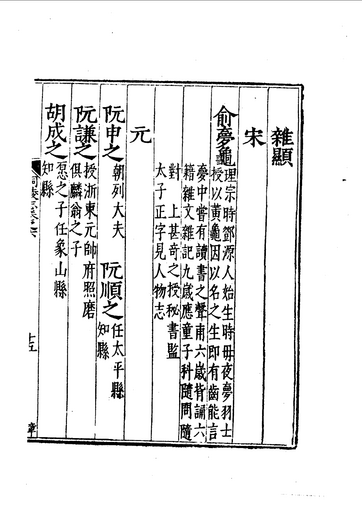 雜顯
宋
俞夢龜
理宗時源人始生時毋夜夢羽士
授以黃龜因以名之生即有齒能言
夢中嘗有讀書之聲甫六歲背誦六
籍雜文雜記九歲應童子科隨問隨
對上甚奇之授秘書監
太子正字見人物志
元
阮申之
朝列大夫
阮順之
任太平縣
知縣
阮謙之
授浙東元帥府照磨
俱麟翁之子
胡成之
之子任象山縣
知縣
十五